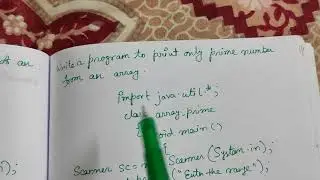 ts an
Write a program to print only prime number
form an array.
import java.util.*;
class array_prime
void main()
{
Scanner sc = Scanner (System.in);
);
("Enter the range");